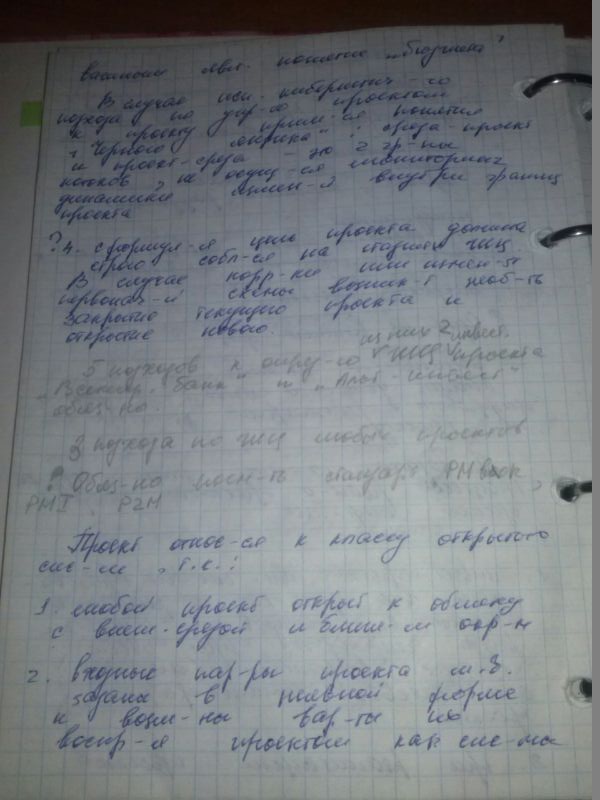 важным явл. понятие „бюджета"
В случае исп. кибернетич-го
подхода по упр-ю проектом
к проекту прим-ся понятия
„Черного ящика": среда-проект
и проект-среда - это 2 гр-пы
потоков, не осущ-ся мониторинг
динамики измен-я внутри границ
проекта
? 4. сформул-я цель проекта должна
строго собл-ся на стадиях ЖЦ.
В случае корр-ки или измен-я
первонач-й схемы возник-т необ-ть
закрытие текущего проекта и
открытие нового.
из них 2 инвест.
5 подходов к опред-ю ЖЦ проекта
„Всемир. банк" и „Альт-инвест"
обяз-но.
3 подхода по ЖЦ любых проектов
? Обяз-но посм-ть стандарт PMBOK,
PMI P2M
Проект относ-ся к классу открытых
сис-м, т.е.:
1. любой проект открыт к обмену
с внеш. средой и
2. входные пар-ры проекта м.б.
заданы в неявной форме
и возм-ны вар-ты их
воспр-я проектом как сис-мы